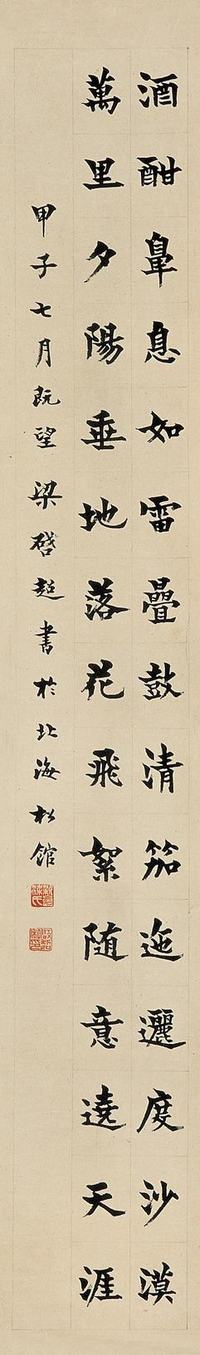 酒酣鼻息如雷疊鼓清笳迤邐度沙漠
萬里夕陽垂地落花飛絮随意遶天涯
甲子七月既望梁啓超書於北海松館